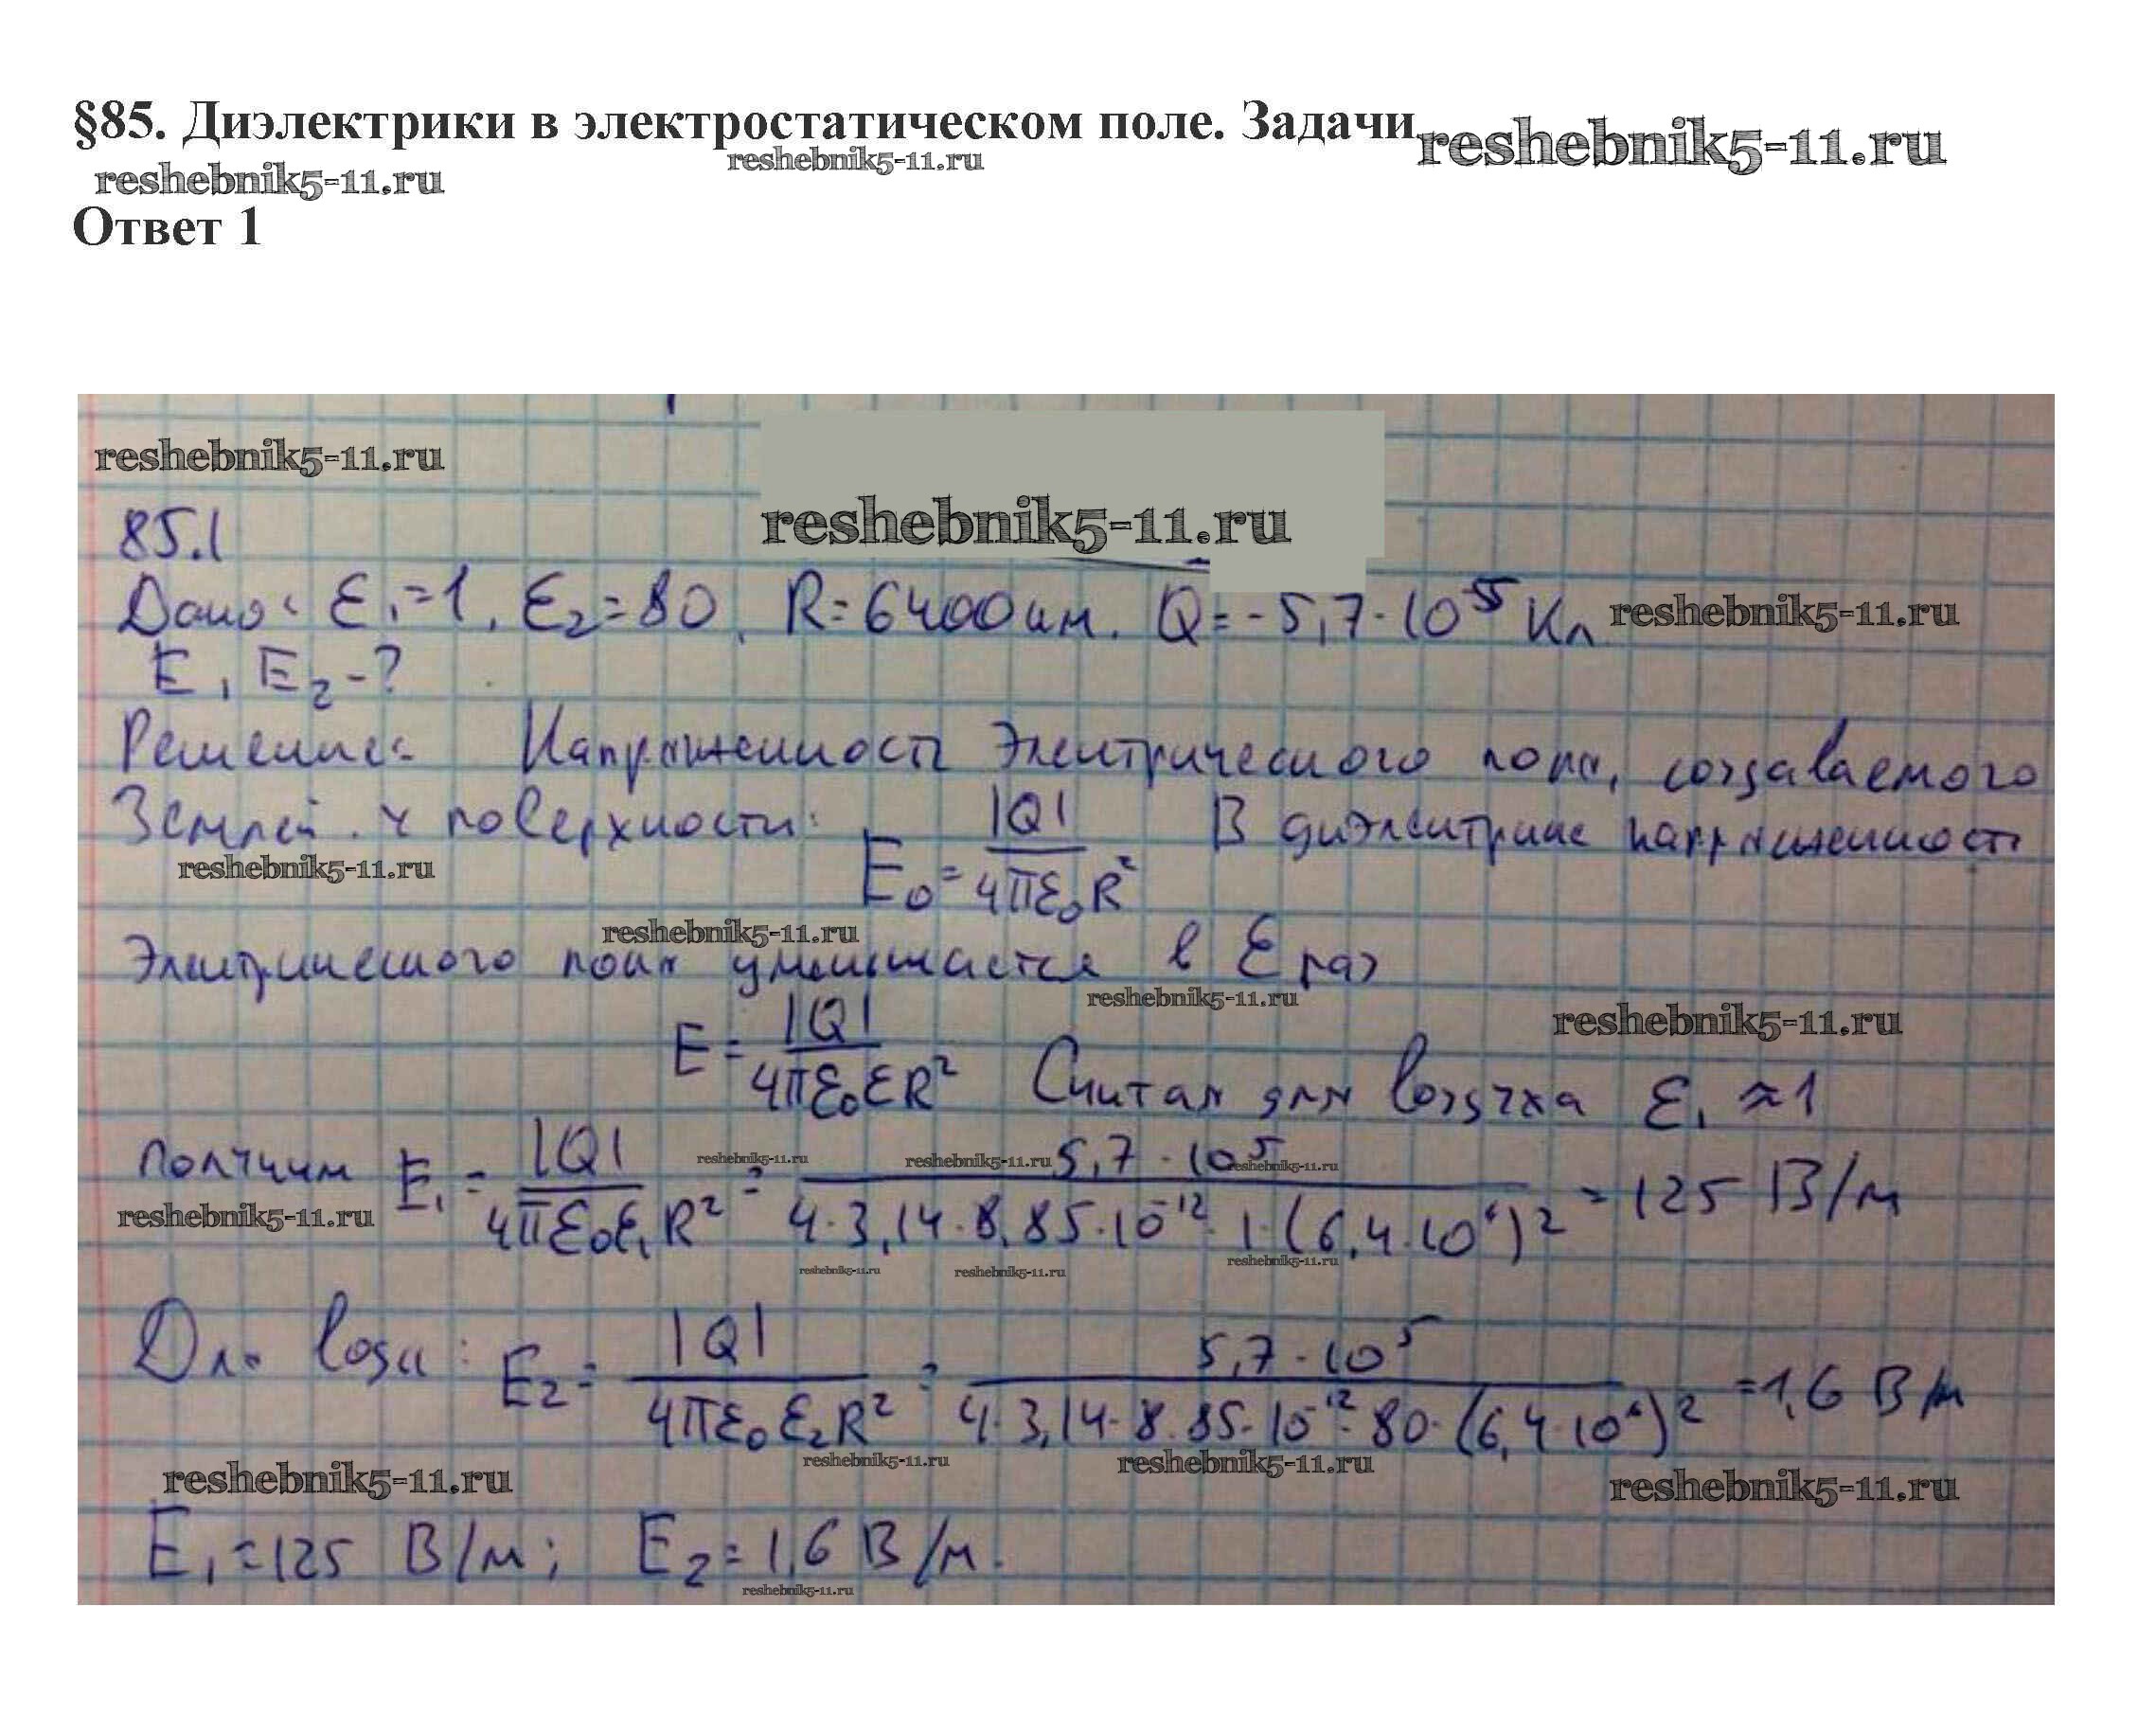 §85. Диэлектрики в электростатическом поле. Задачи reshebnik5-11.ru
reshebnik5-11.ru reshebnik5-11.ru
Ответ 1
reshebnik5-11.ru
reshebnik5-11.ru
85.1
Дано: Ɛ₁=1, Ɛ₂=80, R=6400км. Q=-5,7·10⁵ Кл reshebnik5-11.ru
E, E₂-?
Решение: Напряженность электрического поля, создаваемого
Землей у поверхности: E₀=|Q|/4πƐ₀R² В диэлектрике напряженность
reshebnik5-11.ru
reshebnik5-11.ru
Электрического поля уменьшается в Ɛ раз
reshebnik5-11.ru
reshebnik5-11.ru
E=|Q|/4πƐ₀ƐR² Считая для воздуха Ɛ₁≈1
reshebnik5-11.ru reshebnik5-11.ru reshebnik5-11.ru
получим E₁=|Q|/4πƐ₀Ɛ₁R²=5,7·10⁵/4·3,14·8,85·10⁻¹²·1·(6,4·10⁶)²=125 В/м
reshebnik5-11.ru
reshebnik5-11.ru reshebnik5-11.ru reshebnik5-11.ru
Для воды: E₂=|Q|/4πƐ₀Ɛ₂R²=5,7·10⁵/4·3,14·8.85·10⁻¹²·80·(6,4·10⁶)²=1,6 В/м
reshebnik5-11.ru reshebnik5-11.ru
reshebnik5-11.ru reshebnik5-11.ru
E₁=125 В/м; E₂=1,6 В/м.
reshebnik5-11.ru